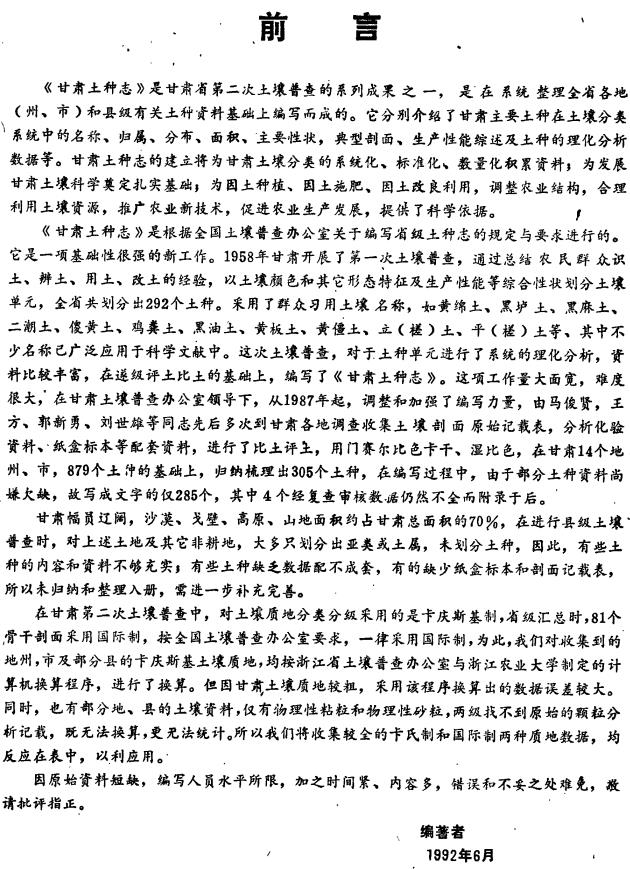 前言
《甘肃土种志》是甘肃省第二次土壤普查的系列成果之一，是在系统整理全省各地
（州、市）和县级有关土种资料基础上编写而成的。它分别介绍了甘肃主要土种在土壤分类
系统中的名称、归属、分布、面积、主要性状，典型剖面、生产性能综述及土种的理化分析
数据等。甘肃土种志的建立将为甘肃土壤分类的系统化、标准化、数量化积累资料；为发展
甘肃土壤科学奠定扎实基础；为因土种植、因土施肥、因土改良利用，调整农业结构，合理
利用土壤资源，推广农业新技术，促进农业生产发展，提供了科学依据。
《甘肃土种志》是根据全国土壤普查办公室关于编写省级土种志的规定与要求进行的。
它是一项基础性很强的新工作。1958年甘肃开展了第一次土壤普查，通过总结农民群众识
土、辨土、用土、改土的经验，以土壤颜色和其它形态特征及生产性能等综合性状划分土壤
单元，全省共划分出292个土种。采用了群众习用土壤名称，如黄绵土、黑垆土、黑麻土、
二潮土、傻黄土、鸡粪土、黑油土、黄板土、黄僵土、立（槎）土、平（槎）土等、其中不
少名称已广泛应用于科学文献中。这次土壤普查，对于土种单元进行了系统的理化分析，资
料比较丰富，在逐级评土比土的基础上，编写了《甘肃土种志》。这项工作量大面宽，难度
很大，在甘肃土壤普查办公室领导下，从1987年起，调整和加强了编写力量，由马俊贤，王
方、郭新勇、刘世雄等同志先后多次到甘肃各地调查收集土壤剖面原始记载表，分析化验
资料、纸盒标本等配套资料，进行了比土评土，用门赛尔比色卡干、湿比色，在甘肃14个地
州、市，879个土种的基础上，归纳梳理出305个土种，在编写过程中，由于部分土种资料尚
嫌欠缺，故写成文字的仅285个，其中4个经复查审核数据仍然不全而附录于后。
甘肃幅员辽阔，沙漠、戈壁、高原、山地面积约占甘肃总面积的70%，在进行县级土壤
普查时，对上述土地及其它非耕地，大多只划分出亚类或土属，未划分土种，因此，有些土
种的内容和资料不够充实；有些土种缺乏数据配不成套，有的缺少纸盒标本和剖面记载表，
所以未归纳和整理入册，需进一步补充完善。
在甘肃第二次土壤普查中，对土壤质地分类分级采用的是卡庆斯基制，省级汇总时，81个
骨干剖面采用国际制，按全国土壤普查办公室要求，一律采用国际制，为此，我们对收集到的
地州，市及部分县的卡庆斯基土壤质地，均按浙江省土壤普查办公室与浙江农业大学制定的计
算机换算程序，进行了换算。但因甘肃土壤质地较粗，采用该程序换算出的数据误差较大。
同时，也有部分地、县的土壤资料，仅有物理性粘粒和物理性砂粒，两级找不到原始的颗粒分
析记载，既无法换算，更无法统计。所以我们将收集较全的卡氏制和国际制两种质地数据，均
反应在表中，以利应用。
因原始资料短缺，编写人员水平所限，加之时间紧、内容多，错误和不妥之处难免，敬
请批评指正。
编著者
1992年6月